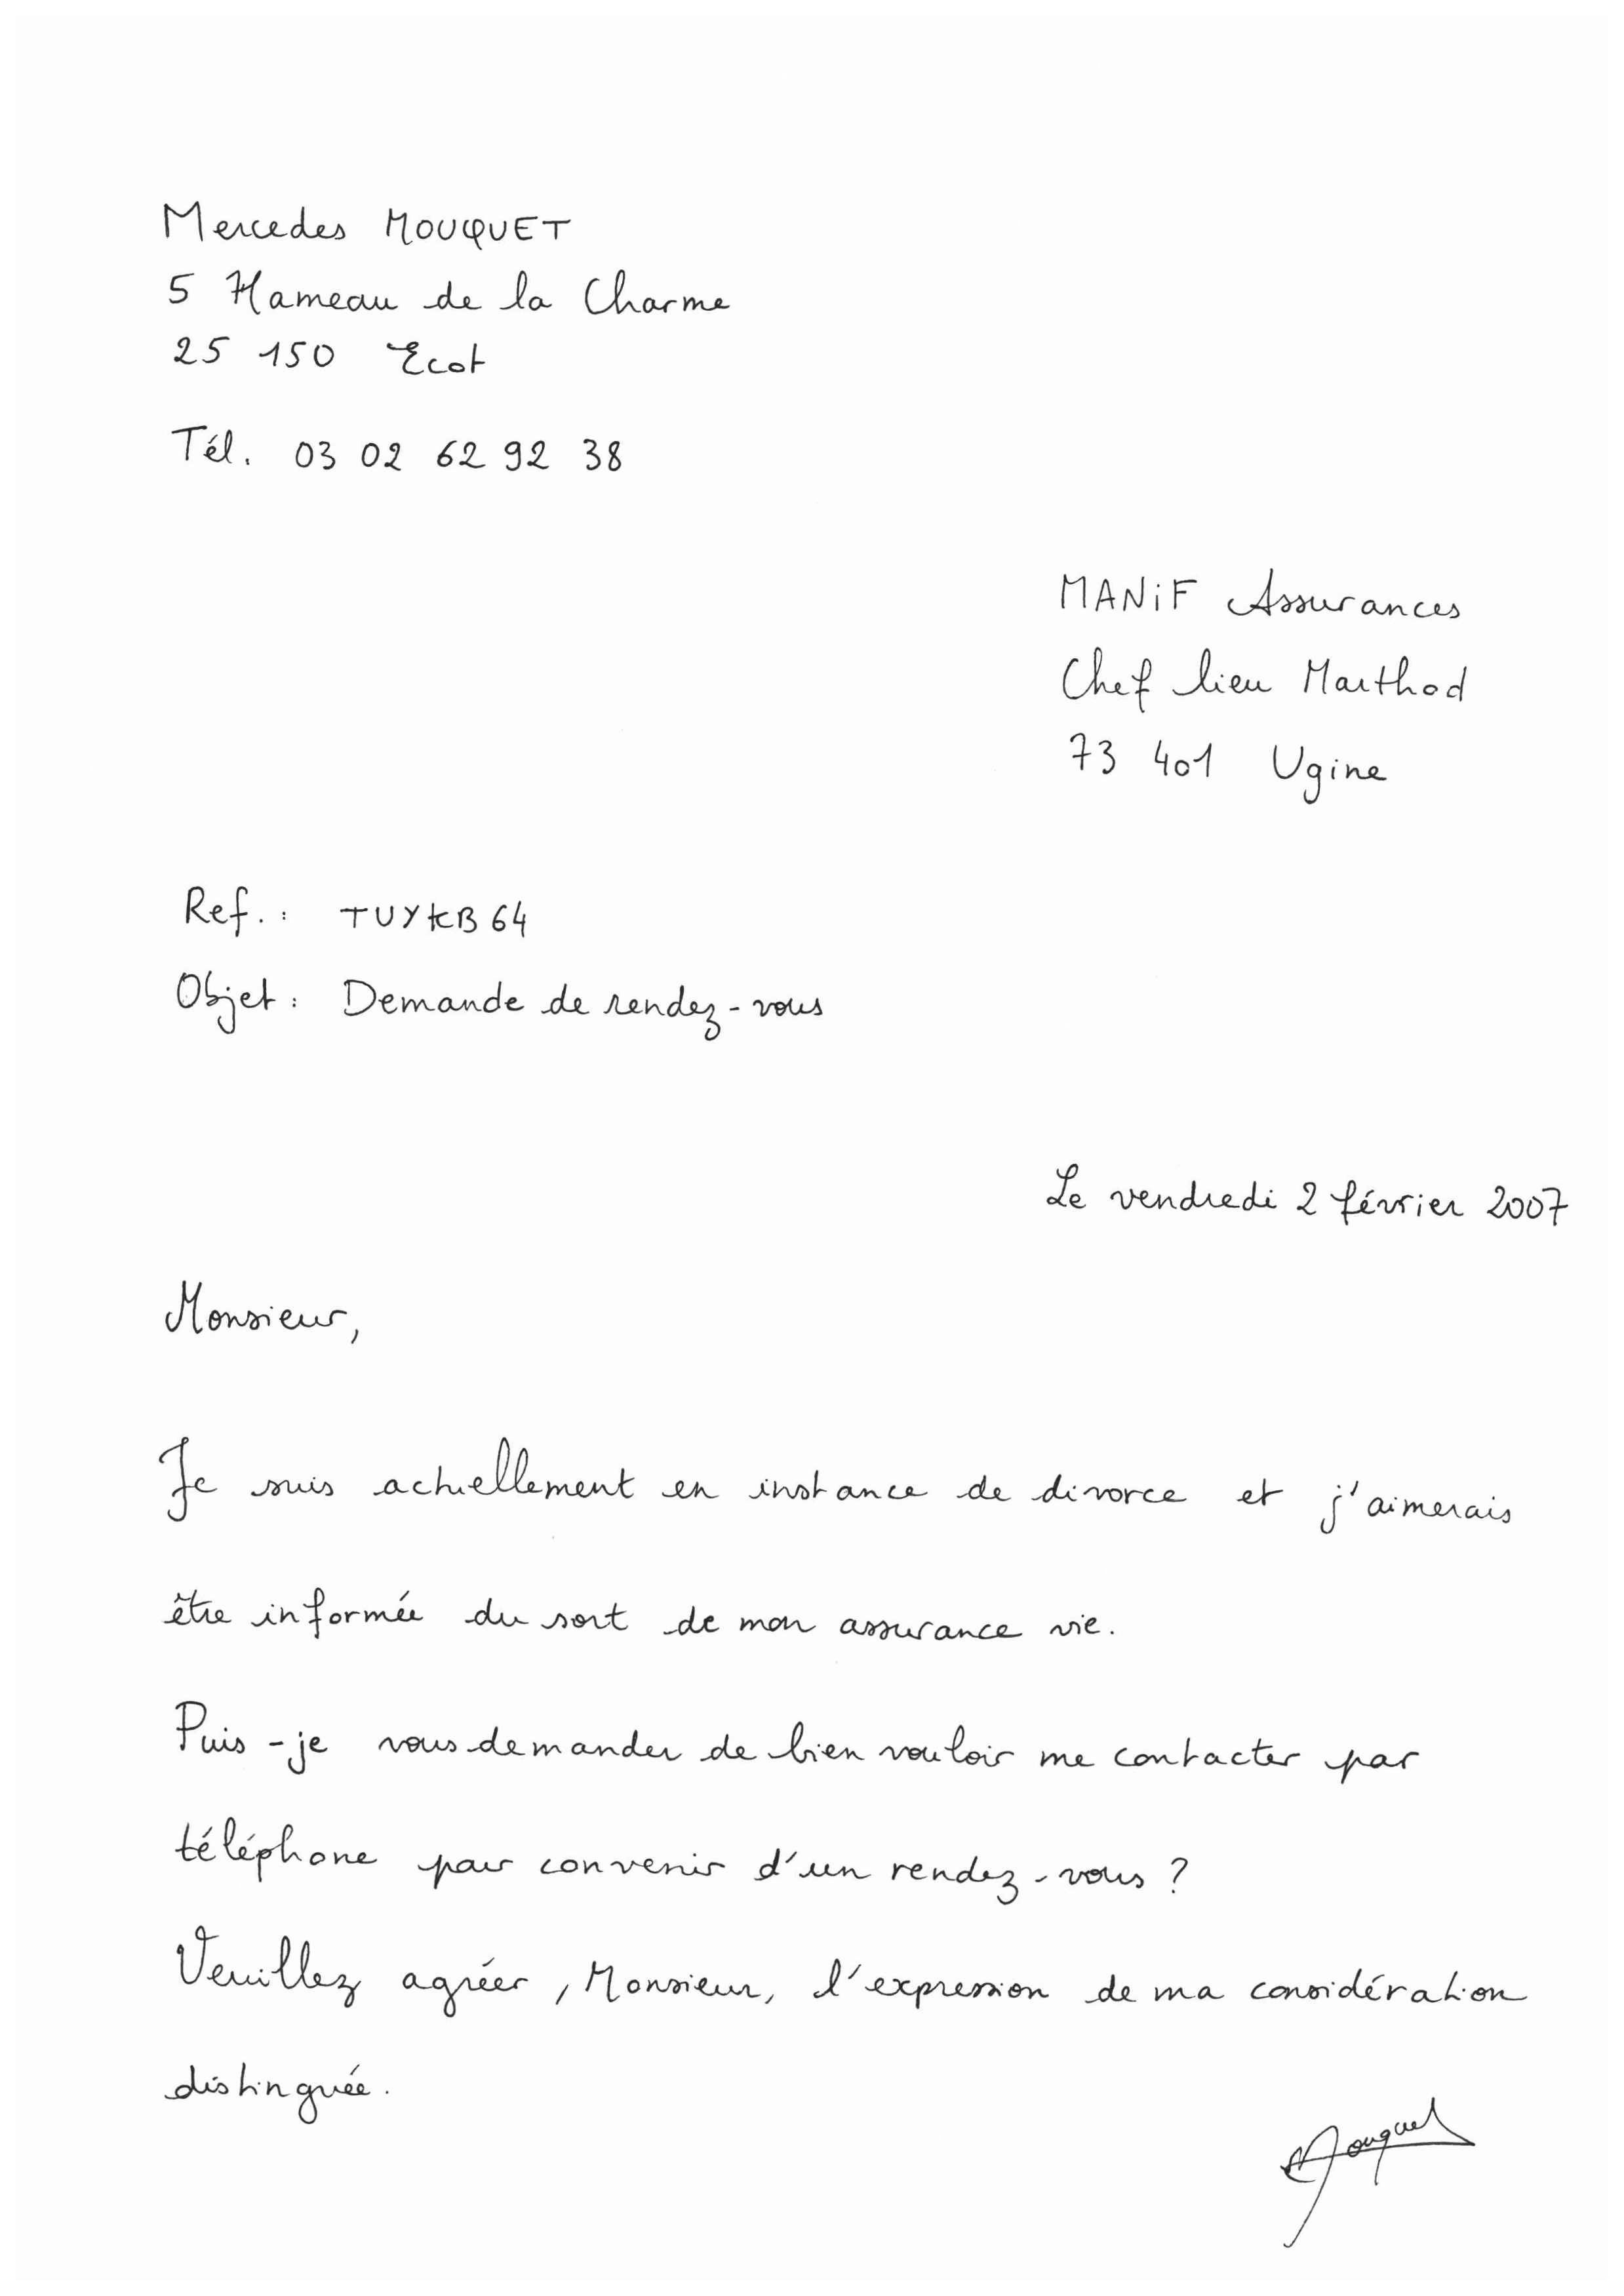 Mercedes MOUQUET
5 Hameau de la Charme
25 150 Ecot
Tél. 03 02 62 92 38
MANiF Assurances
Chef lieu Marthod
73 401 Ugine
Ref. : TUYKB64
Objet : Demande de rendez-vous
Le vendredi 2 février 2007
Monsieur,
Je suis actuellement en instance de divorce et j'aimerais
être informée du sort de mon assurance vie.
Puis-je vous demander de bien vouloir me contacter par
téléphone pour convenir d'un rendez-vous ?
Veuillez agréer, Monsieur, l'expression de ma considération
distinguée.
Mouquet